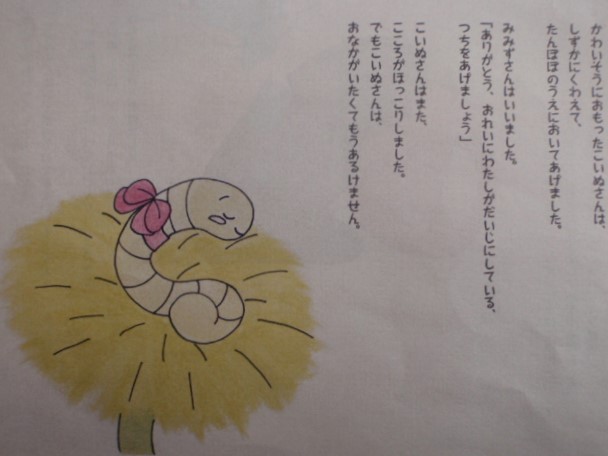 かわいそうにおもったこいぬさんは、
しずかにくわえて、
たんぽぽのうえにおいてあげました。
みみずさんはいいました。
「ありがとう、おれいにわたしがだいじにしている、
つちをあげましょう」
こいぬさんはまた、
こころがほっこりしました。
でもこいぬさんは、
おなかがいたくてもうあるけません。